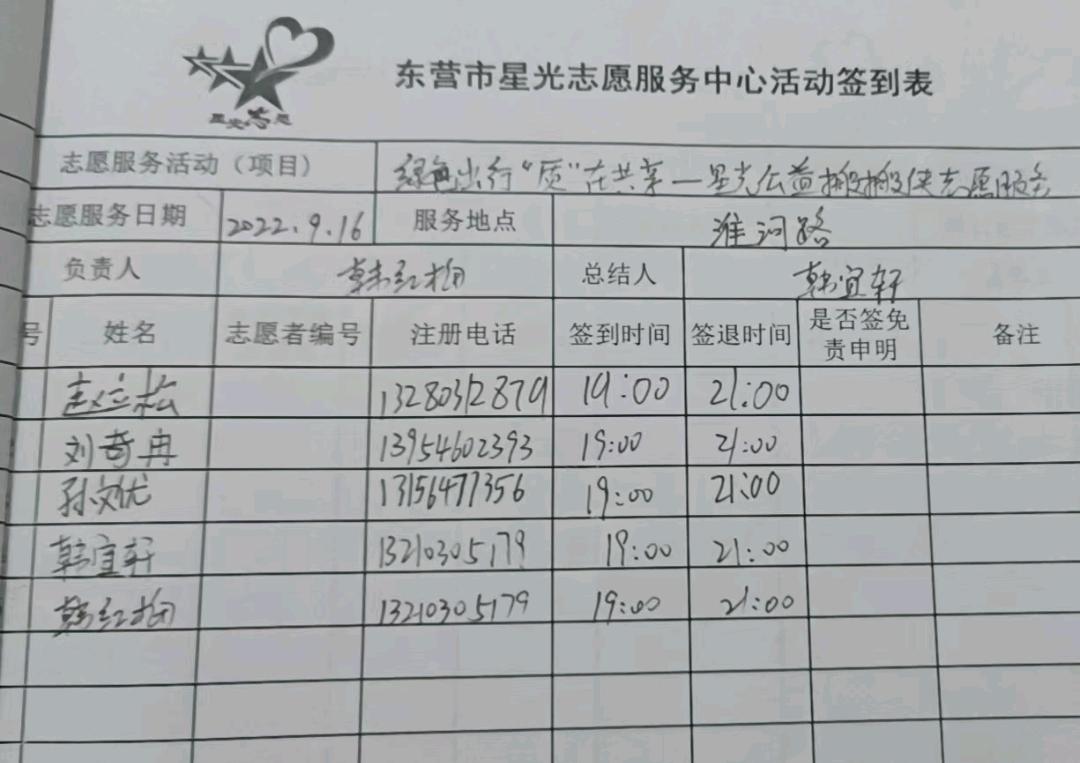 星光志愿
东营市星光志愿服务中心活动签到表
志愿服务活动（项目） 绿色出行“质”在共享—星光公益挪挪侠志愿服务
志愿服务日期 2022.9.16 服务地点 淮河路
负责人 韩红梅 总结人 韩宜轩
号 姓名 志愿者编号 注册电话 签到时间 签退时间 是否签免责申明 备注
赵立松 13280312879 19:00 21:00
刘奇冉 13954602393 19:00 21:00
孙文优 13156477356 19:00 21:00
韩宜轩 13210305179 19:00 21:00
韩红梅 13210305179 19:00 21:00